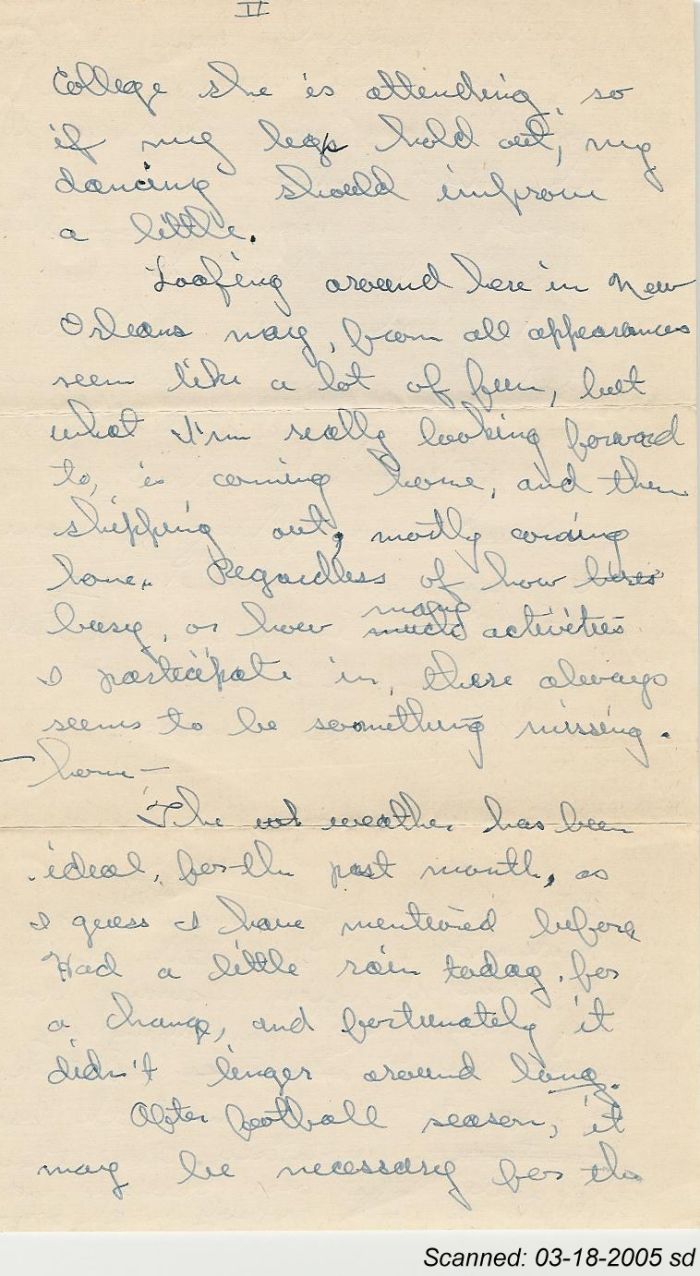 II
College she is attending, so
if my legs hold out, my
dancing should improve
a little.
Loafing around here in New
Orleans may, from all appearances
seem like a lot of fun, but
what I'm really looking forward
to, is coming home, and then
shipping out, mostly coming
home. Regardless of how
busy, or how many much activities
I participate in, there always
seems to be something missing.
— home —
The weather has been
ideal, for the past month, as
I guess I have mentioned before
Had a little rain today, for
a change, and fortunately it
didn't linger around long.
After football season, it
may be necessary for the
Scanned: 03-18-2005 sd